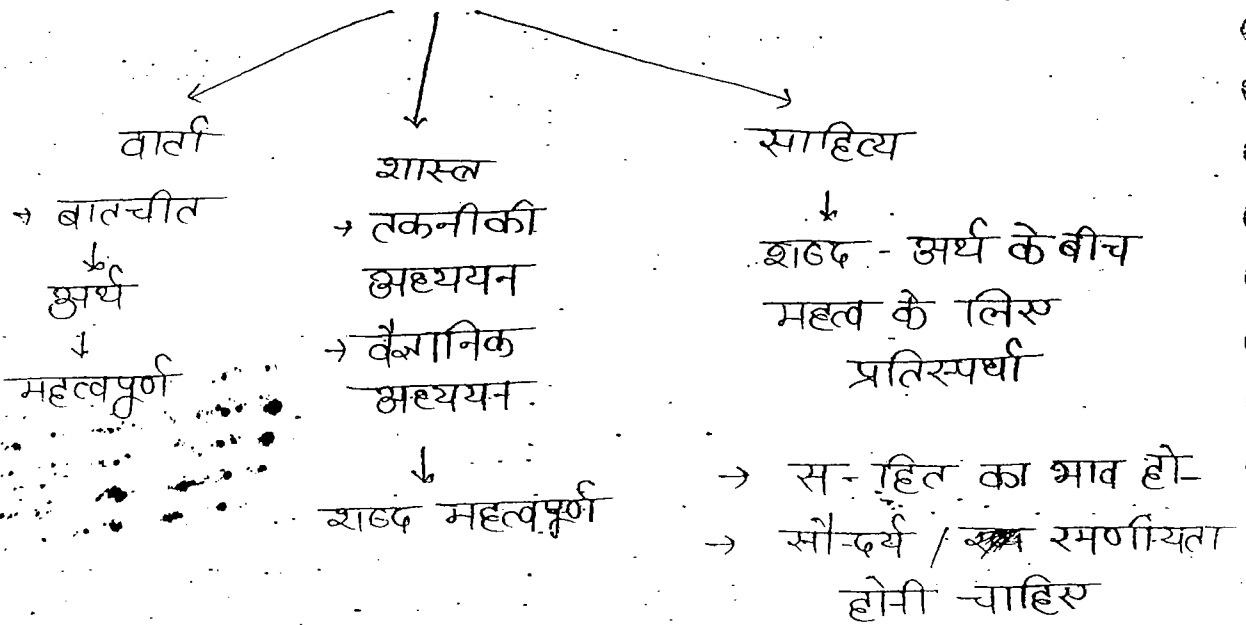 वार्ता
→ बातचीत
↓
अर्थ
↓
महत्वपूर्ण
शास्त्र
→ तकनीकी
अध्ययन
→ वैज्ञानिक
अध्ययन
↓
शब्द महत्वपूर्ण
साहित्य
↓
शब्द - अर्थ के बीच
महत्व के लिए
प्रतिस्पर्धा
→ स - हित का भाव हो-
→ सौन्दर्य / रमणीयता
होनी चाहिए